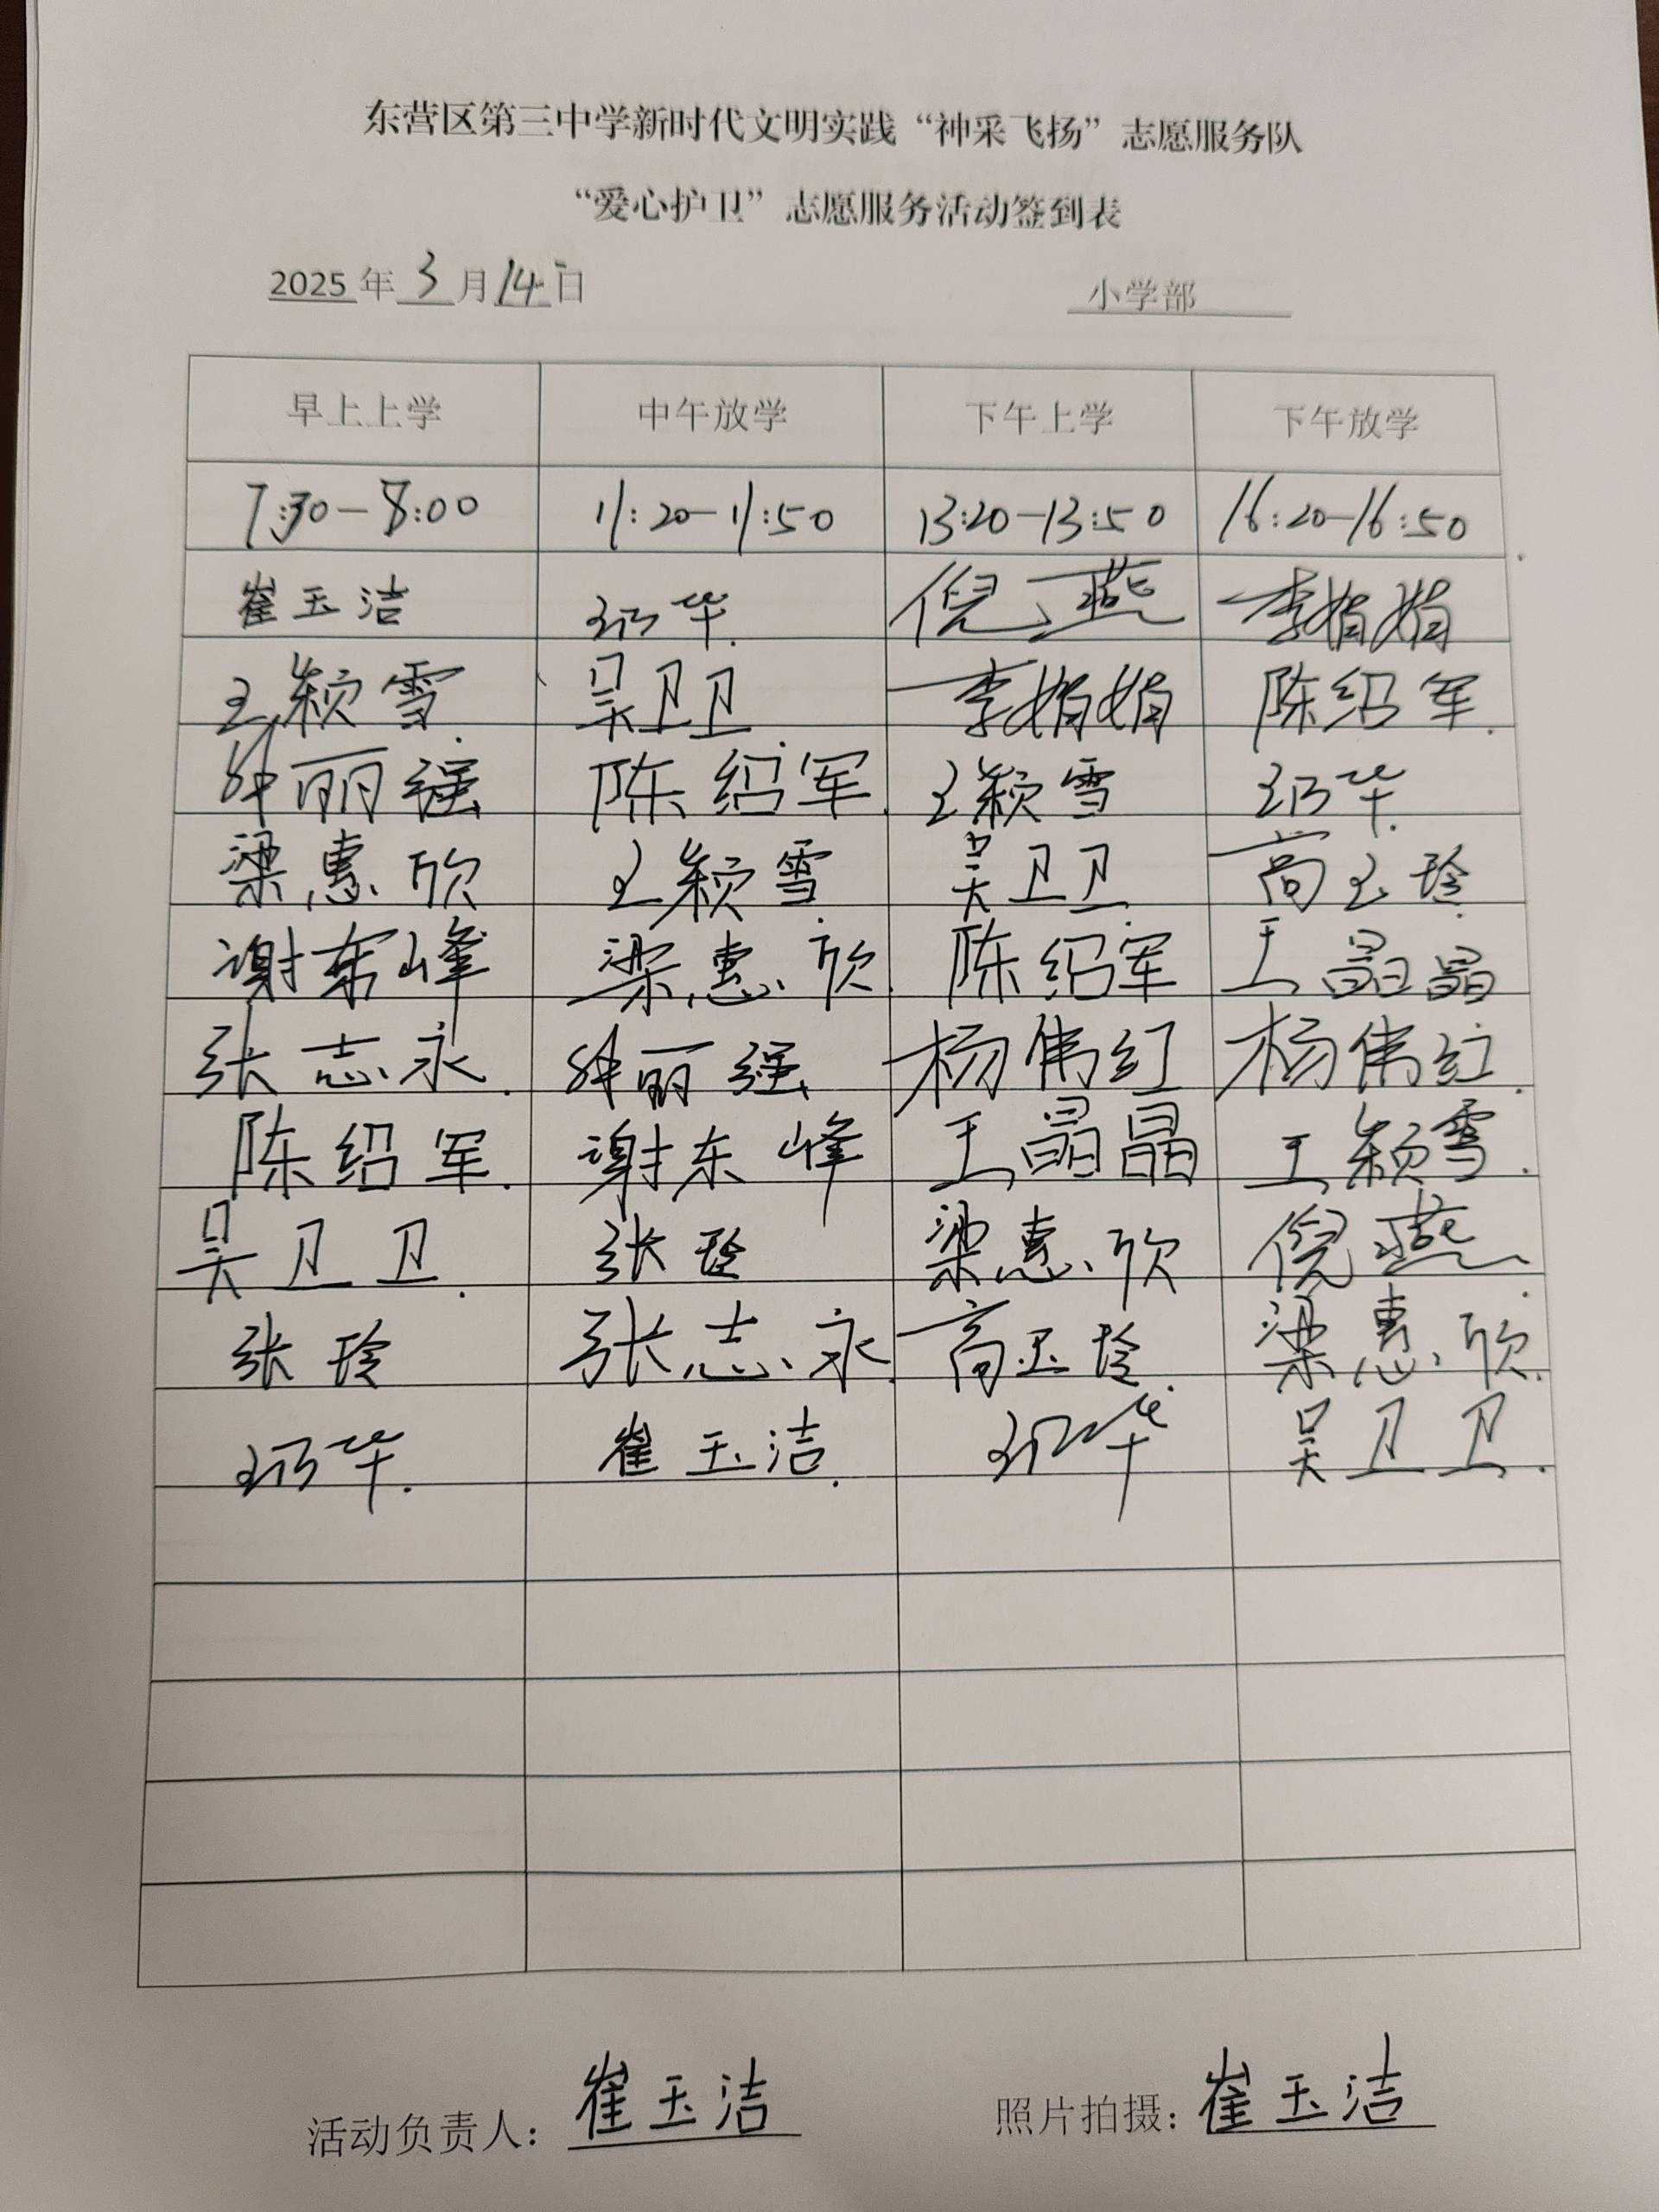 东营区第三中学新时代文明实践“神采飞扬”志愿服务队
“爱心护卫”志愿服务活动签到表
2025年3月14日 小学部
早上上学 中午放学 下午上学 下午放学
7:30-8:00 11:20-11:50 13:20-13:50 16:20-16:50
崔玉洁 华 倪燕 李娟娟
王颖雪 吴卫卫 李娟娟 陈绍军
丽强 陈绍军 王颖雪 华
梁惠欣 王颖雪 吴卫卫 高玉玲
谢东峰 梁惠欣 陈绍军 王晶晶
张志永 丽强 杨伟红 杨伟红
陈绍军 谢东峰 王晶晶 王颖雪
吴卫卫 张玲 梁惠欣 倪燕
张玲 张志永 高玉玲 梁惠欣
华 崔玉洁 华 吴卫卫
活动负责人：崔玉洁 照片拍摄：崔玉洁